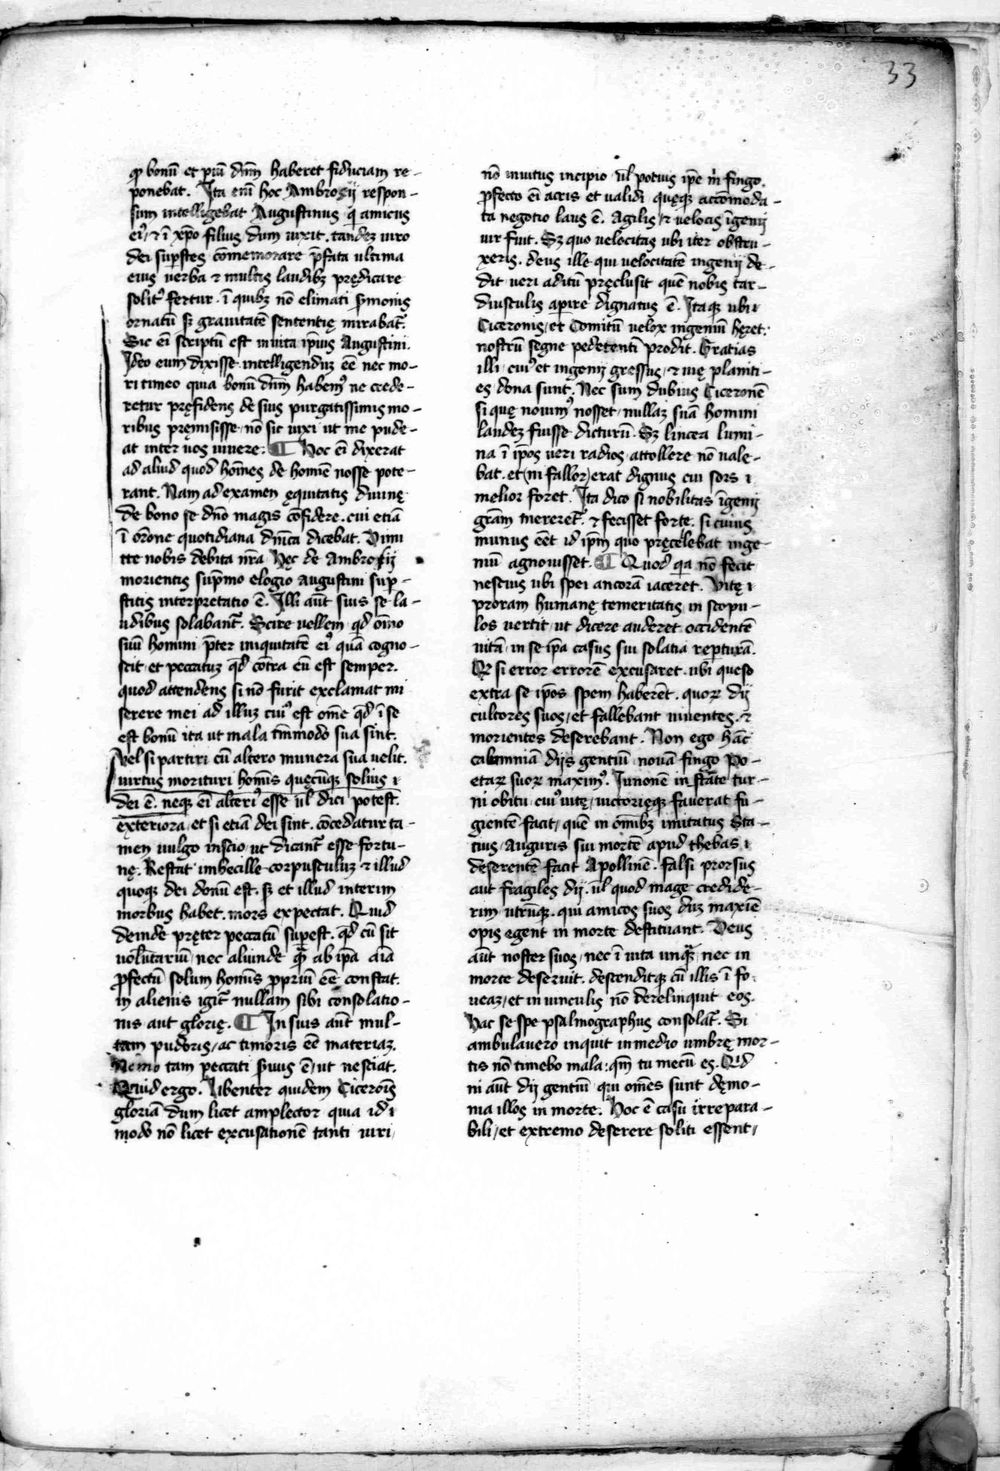 33
qͻ bonū et piū dnm̄ haberet fiduciam re-
ponebat. Ita eni hoc Ambrosij respon-
sum intelligebat Augustinus qi amicus
eiꝰ, ⁊ ī xp̄o filius dum uixit. tandeꝫ uiro
dei suꝑstes cōmemorare p̄fata ultima
eius uerba ⁊ multis laudibꝫ prędicare
solitꝰ fertur. ī quibꝫ nō elimati ẜmonis
ornatū sꝫ grauitatē sententię mirabat̄.
Sic ei scriptū est in uita ipsius Augustini.
Ideo eum dixisse intelligenduꝫ eē nec mo-
ri timeo quia bonū dnm̄ habemꝰ ne crede-
retur pręfidens de suis purgatissimis mo-
ribus pręmisisse. nō sic uixi ut me pude-
at inter uos uiuere. ¶ Hoc ei dixerat
ad aliud quod hoīes de homīe nosse pote-
rant. Nam ad examen ęquitatis diuinę
de bono se dn̄o magis cōfidere. cui etiā
ī orōne quotidiana dn̄ica dicebat. Dimi
tte nobis debita nr̄a. Hęc de Ambrosij
morientis supͤmo elogio augustini suꝑ-
stitis interpretatio ē. Illi aūt suis se la-
udibus solabant̄. Scire uellem qid oīno
suū homini p̄ter iniquitatē eiꝰ quā cogno-
scit, et peccatuꝫ qd̄ cōtra eū est semper.
quod attendens si nō furit exclamat mi
serere mei ad illuꝫ cuiꝰ est om̄e qd̄ ī se
est bonū ita ut mala tm̄modo sua sint.
Vel si partiri cū altero munera sua uelit.
uirtus morituri homīs quęcūqꝫ solius
dei ē. neqꝫ ei alteriꝰ esse ul̄ dici potest.
exteriora, et si etiā dei sint. cōcedatur ta-
men uulgo inscio, ut dicant̄ esse fortu-
nę. Restat imbecille corpusculuꝫ ⁊ illud
quoqꝫ dei donū est. sꝫ et illud interim
morbus habet. mors expectat. Quid
deinde pręter peccatū suꝑest. qd̄ cū sit
uolūtariū, nec aliunde qͣꝫ ab ipa aīa
ꝓfectū solum homīs ꝓpriū eē constat.
in alienis igit̄ nullam sibi consolatio-
nis aut glorię. ¶ In suis aūt mul-
tam pudoris, ac timoris eē materiaꝫ.
Nemo tam peccati ẜuus ē, ut nesciat.
Quid ergo. Libenter quidem Ciceroīs
gloriā dum licet amplector quia id
modo nō licet excusationē tanti uiri,
nō inuitus incipio ul̄ potius ipe mi fingo.
ꝓfecto ei acris et ualidi quęqꝫ accōmoda-
ta negotio laus ē. Agilis ⁊ uelocis īgenij
uir fuit. Sꝫ quo uelocitas ubi iter obstru-
xeris. deus ille qui uelocitatē ingenij de-
dit ueri aditū pręclusit quē nobis tar-
diusculis aperire dignatus ē. Itaqꝫ ubi
Ciceronis, et Comitū uelox ingeniū heret.
nostrū segne pedetenti prodit. Gratias
illi, cuiꝰ et ingenij gressus, ⁊ uię planiti-
es dona sunt. Nec sum dubius Ciceronē
si quę nouimꝰ nosset, nullaꝫ suā homini
laudeꝫ fuisse dicturū. Sꝫ lincea lumi-
na ī ipōs ueri radios, attollere nō uale-
bat. et (ni fallor) erat dignus cui sors
melior foret. Ita dico si nobilitas īgenij
grām mereret̄. ⁊ fecisset forte, si cuius
munus eēt id ipm̄ quo pręcelebat inge-
niū agnouisset. ¶ Quod qia nō fecit
nescius ubi spei ancorā iaceret. Vitę
proram humanę temeritatis in scopu-
los uertit, ut dicere auderet occidentē
uitā, in se ipa casus sui solatia repturā.
Qͻ si error errorē excusaret. ubi queso
extra se ipos spem haberēt. quoꝝ dij
cultores suos, et fallebant uiuentes. ⁊
morientes deserebant. Non ego hāc
calumniā dijs gentiū nouā fingo Po-
etaꝝ suoꝝ maximꝰ. Iunonē instāte tur-
ni obitu, cuiꝰ uitę, uictorięqꝫ fauerat fu-
gientē facit, quē in omibꝫ imitatus Sta-
tius, Auguris sui mortē apud thebas
deserentē facit Apollinē. falsi prorsus
aut fragiles dij. ul̄ quod mage credide-
rim utrūqꝫ. qui amicos suos dūꝫ maxiē
opis egent in morte destituant. Deus
aūt noster suos, nec ī uita unqͣꝫ, nec in
morte deseruit. descenditqꝫ cū illis ī fo-
ueaꝫ, et in uinculis nō derelinquit eos.
Hac se spe psalmographus consolat̄. Si
ambulauero inquit in medio umbrę mor-
tis nō timebo mala, qm̄ tu mecū es. Qid
ni aūt dij gentiū qui omēs sunt dęmo-
nia illos in morte. Hoc ē casu irrepara-
bili, et extremo deserere soliti essent,